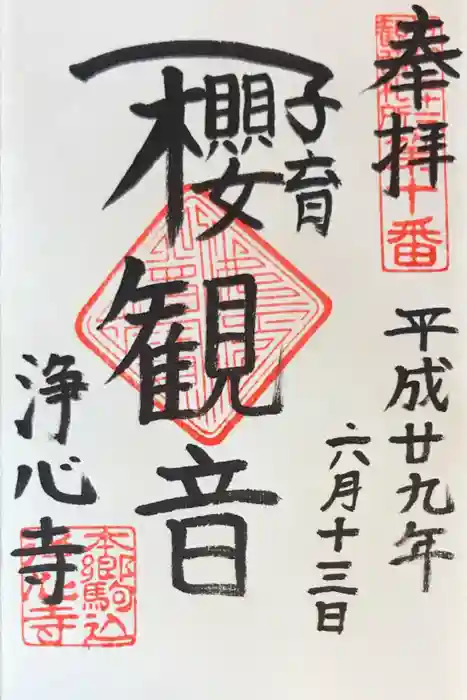 奉拝
十番
平成廿九年
六月十三日
子育
櫻観音
浄心寺
本郷駒込